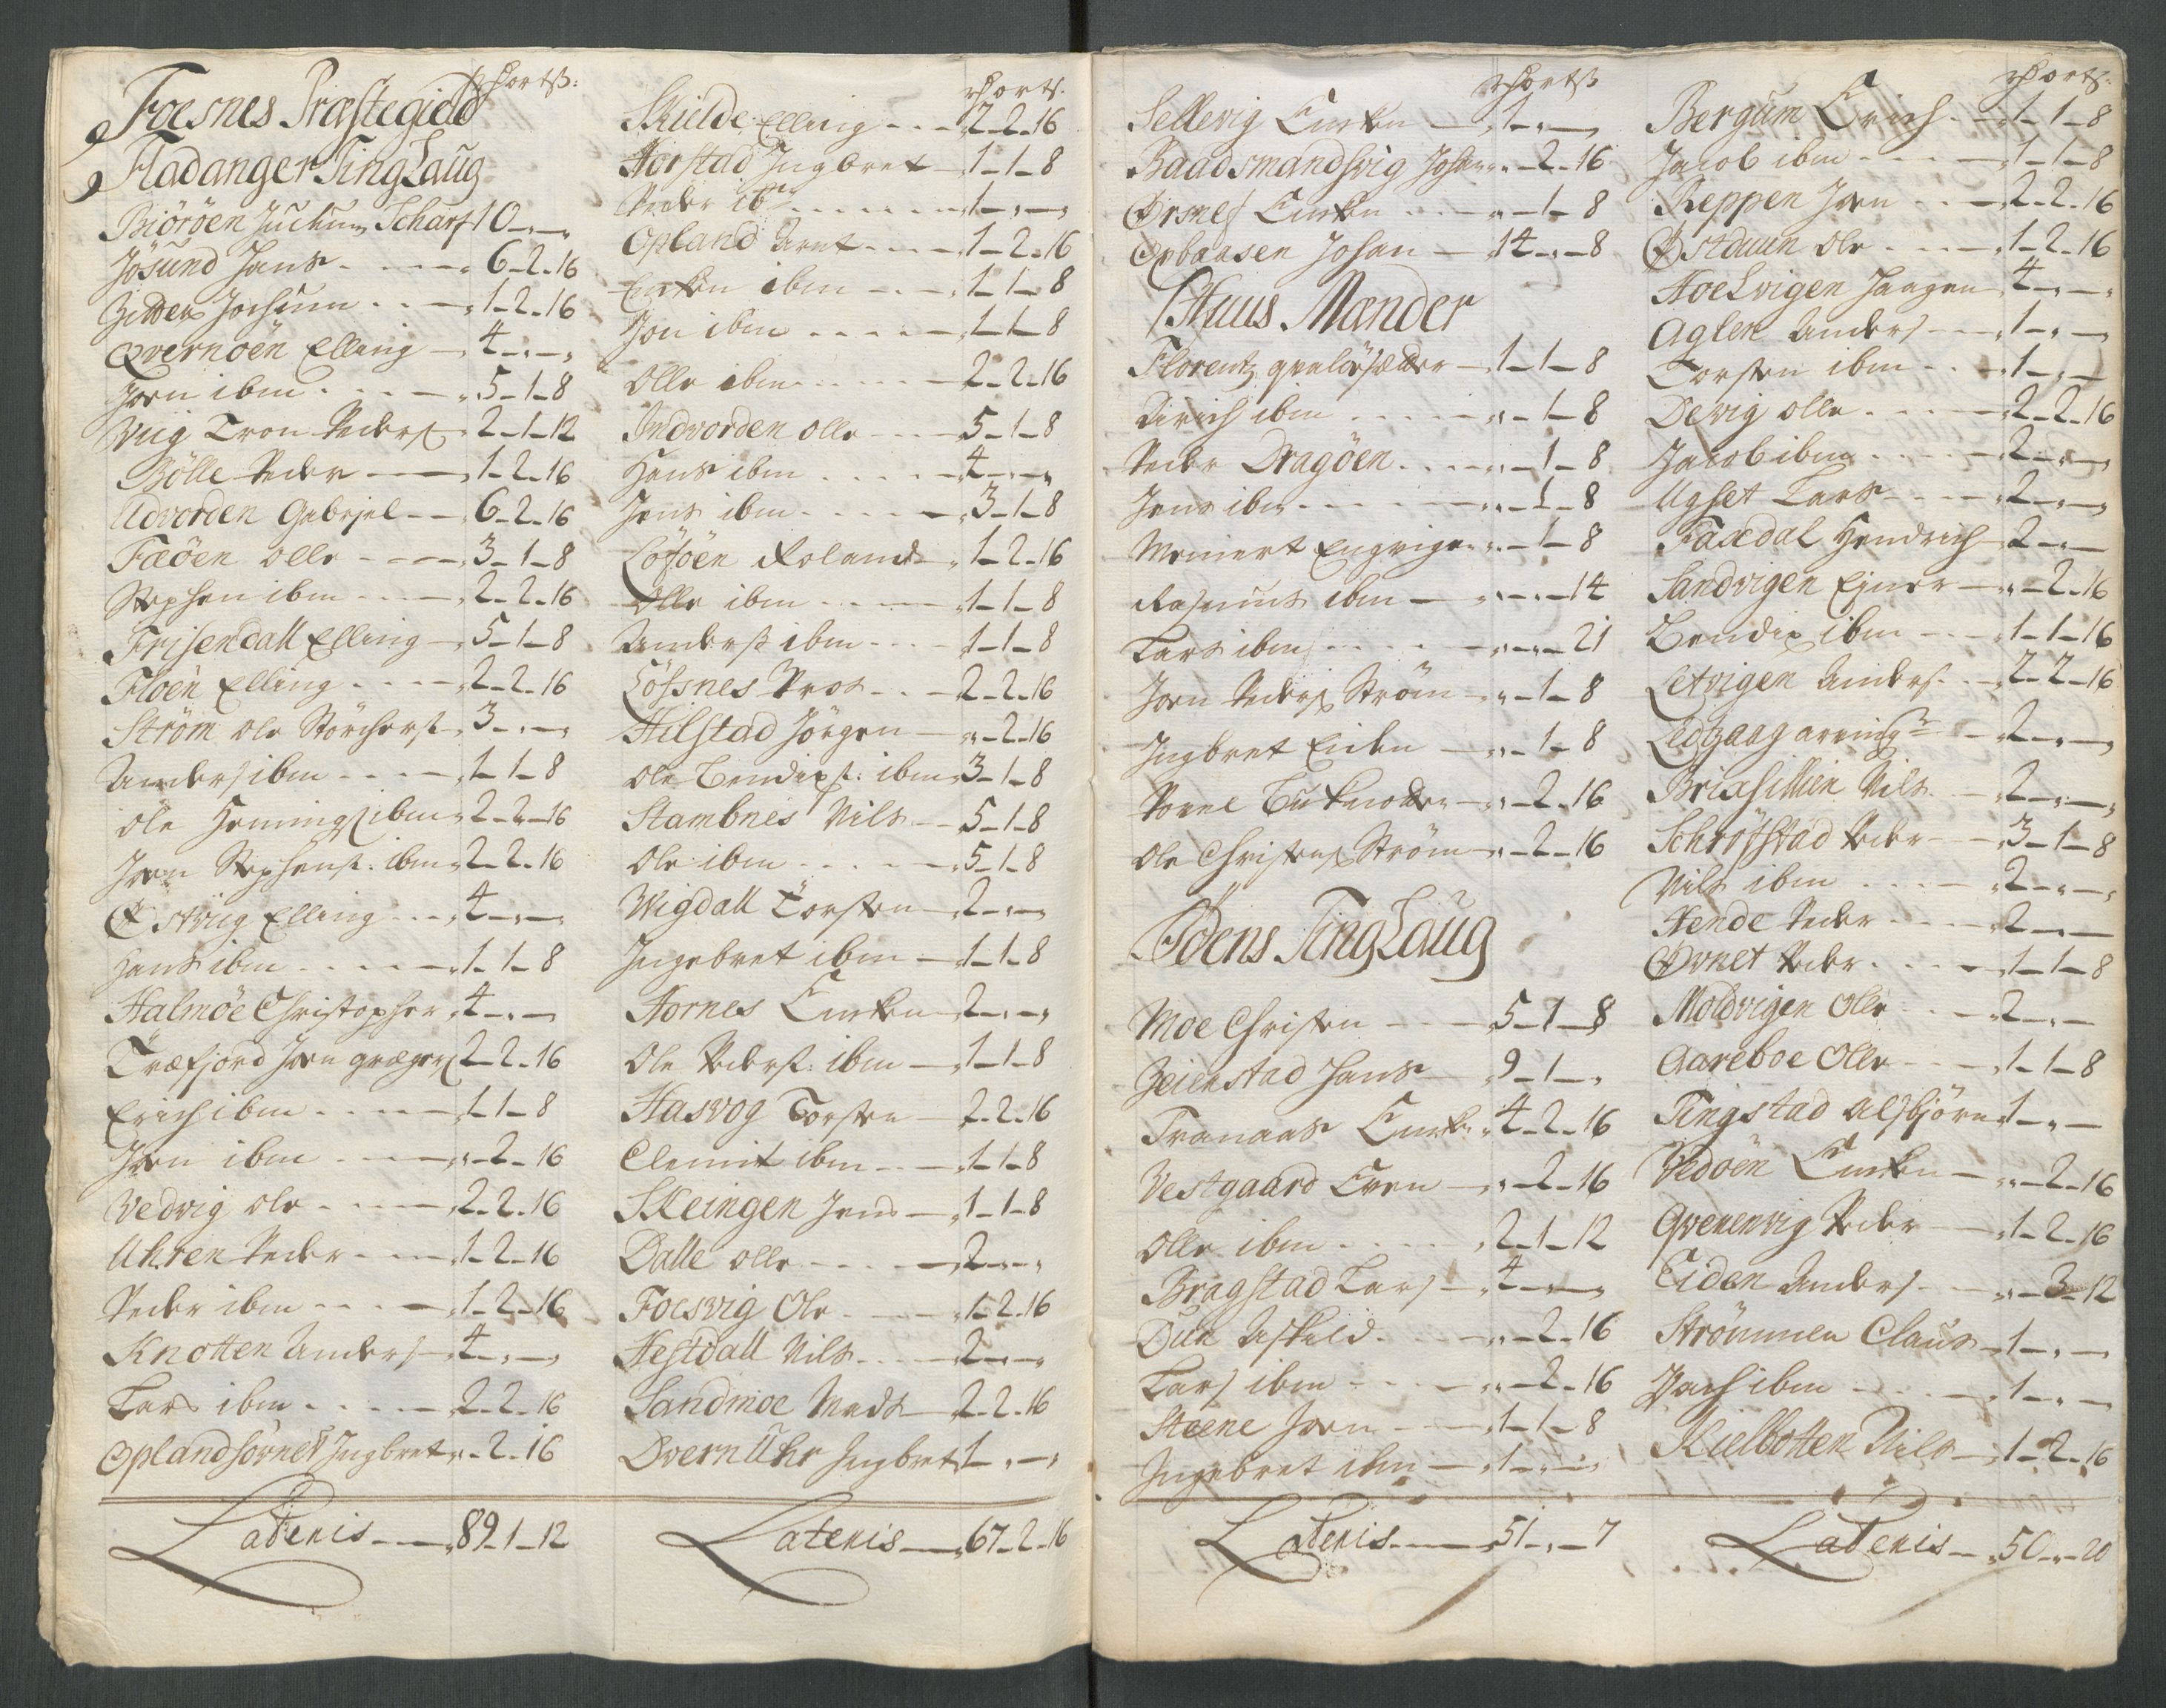 Foesnes Præstegield
Fladanger TingLaug
Biöröen Juchum Scharf 10 - " - "
Jösund Hans - - - " 6 - 2 - 16
Zitter Jochum - - - " 1 - 2 - 16
Qvernöen Elling - " 4 - " - "
Joen ibm - - - " 5 - 1 - 8
Viig Tron Peders " 2 - 1 - 12
Bölle Peder - " 1 - 2 - 16
Udvorden Gabriel - - " 6 - 2 - 16
Fæöen Olle - - - " 3 - 1 - 8
Stephen ibm - - - " 2 - 2 - 16
Frisendall Elling - " 5 - 1 - 8
Floen Elling - - - " 2 - 2 - 16
Ström Ole Störchers " 3 - " - "
Anders ibm - - - " 1 - 1 - 8
Ole Hemings ibm " 2 - 2 - 16
Joen Stephens: ibm " 2 - 2 - 16
Østviig Elling - - " 4 - " - "
Hans ibm - - - " 1 - 1 - 8
Halmöe Christopher " 4 - " -
Træfjord Joen gregers 2 - 2 - 16
Erich ibm - - - " 1 - 1 - 8
Joen ibm - - - " " - 2 - 16
Vedvig Ole - - - " 2 - 2 - 16
Uhren Peder - - - " 1 - 2 - 16
Peder ibm - - - " 1 - 2 - 16
Knotten Anders " 4 - " - "
Lars ibm - - - " 2 - 2 - 16
Oplandsörnes Ingbret " - 2 - 16
Lateris - - " 89 - 1 - 12
Skielde Elling - - - 2 - 2 - 16
Horstad Ingbret - 1 - 1 - 8
Peder ib - - - 1 - " - "
Opland Arnt - - - 1 - 2 - 16
ibm - - - 1 - 1 - 8
Jon ibm - - - 1 - 1 - 8
Olle ibm - - - 2 - 2 - 16
Indvorden Olle - - 5 - 1 - 8
Hans ibm - - - 4 - " - "
Jens ibm - - - " 3 - 1 - 8
Löföen Roland " 1 - 2 - 16
Olle ibm - - - " 1 - 1 - 8
Anders ibm - - - 1 - 1 - 8
Löfsnes Pros - - 2 - 2 - 16
Hilstad Jörgen - " - 2 - 16
Ole Bendixs: ibm " 3 - 1 - 8
Stambnes Nils - - 5 - 1 - 8
Ole ibm - - - " 5 - 1 - 8
Wigdall Torsten " 2 - " - "
Ingebret ibm - " 1 - 1 - 8
Hornes " 2 - " - "
Ole Peders: ibm - " 1 - 1 - 8
Hasvog Torsten - 2 - 2 - 16
Clemit ibm - - - " 1 - 1 - 8
Skeingen Jens - " 1 - 1 - 8
Dalle Olle - - - " 2 - " - "
Foesvig Ole - - - " 1 - 2 - 16
Hestdall Nils - - - " 2 - " - "
Sandmoe Mads - 2 - 2 - 16
Dvern Uhr Ingbret 1 - " - "
Lateris - - " 67 - 2 - 16
Sellevig - " 1 - " -
Baadsmandsvig Johan " - 2 - 16
Ørsnes - - - " - 1 - 8
Opbaasen Johan - " 14 - " - 8
Huus Mænder
Florentz - 1 - 1 - 8
Dirich ibm - - - " - 1 - 8
Peder Dragöen - - - " - 1 - 8
Jens ibm - - - " - 1 - 8
Meinert Engvigen " - 1 - 8
Rasmus ibm - " - " - 14
Lars ibm - - - " - " - 21
Joen Peders Ström " - 1 - 8
Ingbret Eiden - " - 1 - 8
Povel " - 2 - 16
Ole Christens Ström " - 2 - 16
Ödens TingLaug
Moe Christen - - - 5 - 1 - 8
Zeierstad Hans - 9 - 1 - "
Tranaas " 4 - 2 - 16
Vestgaard Even - " - 2 - 16
Olle ibm - - - " 2 - 1 - 12
Bragstad Lars - " 4 - " - "
Dun Askild - - - " - 2 - 16
Lars ibm - - - " - 2 - 16
Steene Joen - - - " 1 - 1 - 8
Ingebret ibm - - " 1 - " - "
Lateris - - " 51 - " - 7
Bergum Erich - - " 1 - 1 - 8
Jacob ibm - - - " 1 - 1 - 8
Reppen Joen - - - " 2 - 2 - 16
Østduun Ole - - - " 1 - 2 - 16
Hoelvigen 4 - " - "
Aglen Anders - - " 1 - " - "
Torsten ibm - - - " 1 - " -
Devig Olle - - - " 2 - 2 - 16
Jacob ibm - - - " 2 - " - "
Ugset Lars - - - " 2 - " - "
Faxdal Hendrich " 2 - " -
Sandvigen Ejner - " - 2 - 16
Bendix ibm - - - " 1 - 1 - 16
Letvigen Anders - - 2 - 2 - 16
Ledtzaag - " 2 - " - "
Nils - " 2 - " - "
Schröfstad Peder - - 3 - 1 - 8
Nils ibm - - - " 2 - " - "
Hende Peder - - - " 2 - " -
Øvnet Peder - - - " 1 - 1 - 8
Moldvigen Olle - - " 2 - " -
Aareboe Olle - - - " 1 - 1 - 8
Tingstad Asbjörn 1 - " -
Vedöen - " - 2 - 16
Qvenenvig Peder - " 1 - 2 - 16
Eiden Anders - - - " - 3 - 12
Strömmen Claus " 1 - " -
ibm - - - " 1 - " - "
Kielbotten Nils - " 1 - 2 - 16
Lateris - " 50 - " - 20